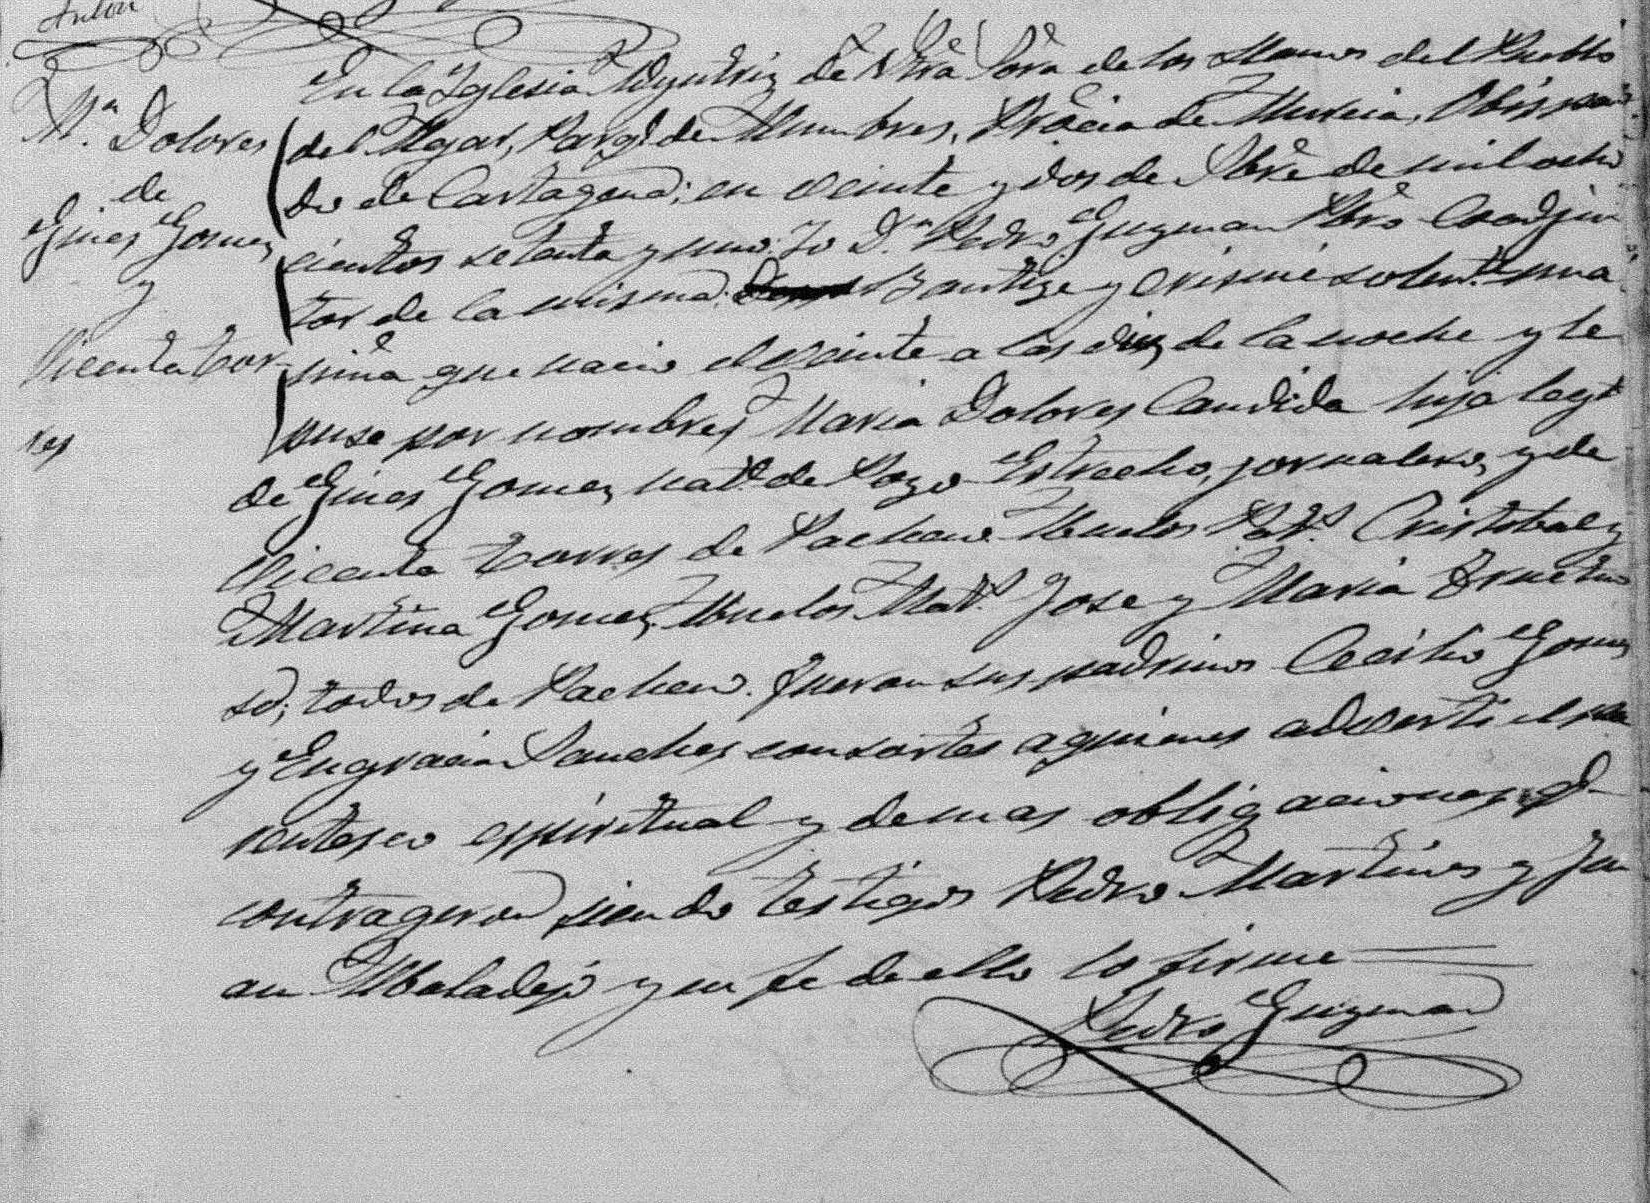 Anton
Mª. Dolores
de
Gines Gomez
y
Vicenta Tor-
res
En la Iglesia Ayutriz de Ntra Sora de los Llanos del Pueblo
del Algar, Parql. de Alumbres, Procia de Murcia, Obispa-
do de Cartagena; en veinte y dos de Sbre de mil ocho
cientos setenta y uno: Yo Dn. Pedro Guzman Pbro Coadju
tor de la misma. Bautize y crismé solemte. una
niña que nacio el veinte a las diez de la noche y le
puse por nombres Maria Dolores Candida hija legt.
de Gines Gomez natl. de Pozo Estrecho, jornalero, y de
Vicenta Torres de Pacheco. Abuelos Pats. Cristobal y
Martina Gomez, Abuelos Mats. Jose y Maria Fructuo
so; todos de Pacheco. Fueron sus padrinos Cecilio Gomez
y Engracia Sanchez consortes a quienes adverti el pa
rentesco espiritual y demas obligaciones q.
contrageron siendo testigos Pedro Martinez y Ju
an Albaladejo y en fe de ello lo firme
Pedro Guzman